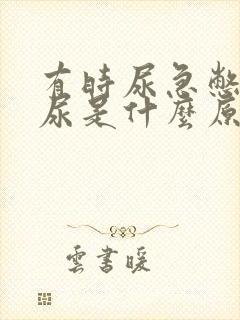 有時尿急憋
尿是什麼原
雲書暖